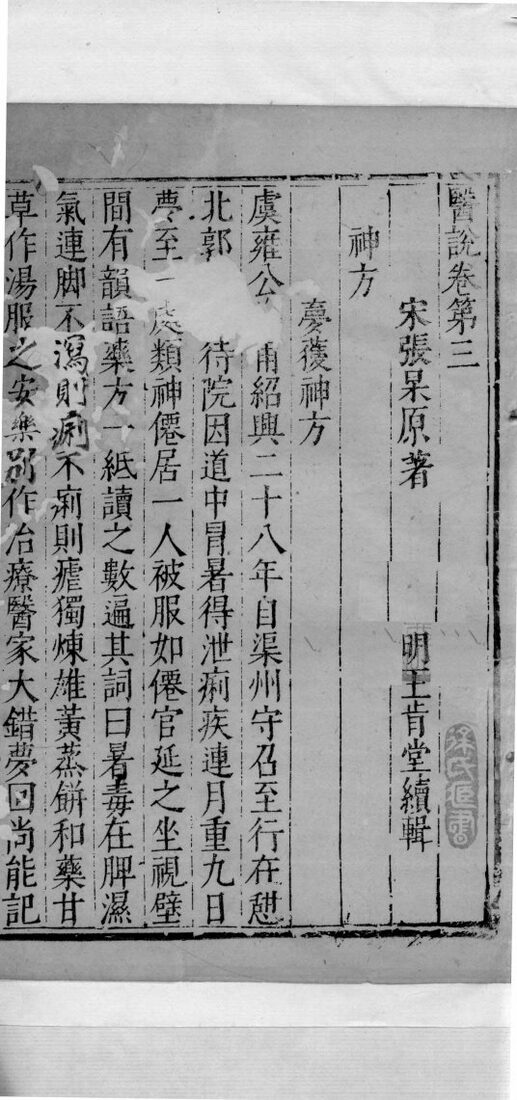 醫說卷第三
宋張杲原著 明王肯堂續輯
神方
夢獲神方
虞雍公 甫紹興二十八年自渠州守召至行在憇
北郭 待院因道中冒暑得泄痢疾連月重九日
夢至一處類神僊居一人被服如僊官延之坐視壁
間有韻語藥方一紙讀之數遍其詞曰暑毒在脾濕
氣連脚不瀉則痢不痢則瘧獨煉雄黃蒸餅和藥甘
草作湯服之安樂別作治療醫家大錯夢回尚能記